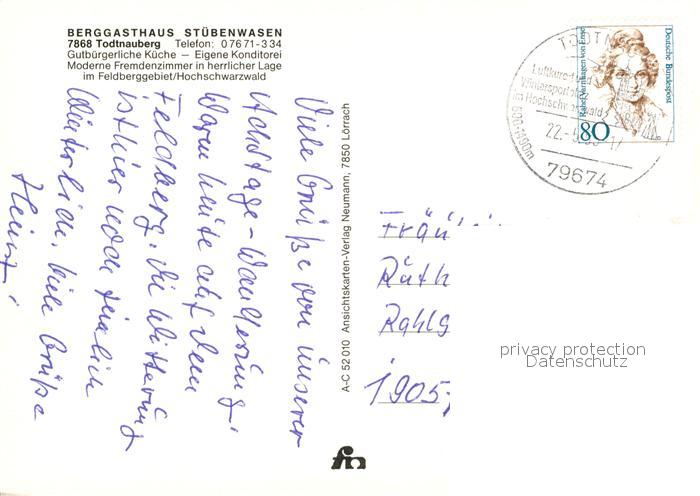 BERGGASTHAUS STÜBENWASEN
7868 Todtnauberg Telefon: 07671-334
Gutbürgerliche Küche — Eigene Konditorei
Moderne Fremdenzimmer in herrlicher Lage
im Feldberggebiet/Hochschwarzwald
Viele Grüße von unserer
Achttage-Wanderung!
Waren heute auf dem
Feldberg. Die Witterung
ist hier noch ziemlich
winterlich. Viele Grüße
Heinz!
A-C 52 010 Ansichtskarten-Verlag Neumann, 7850 Lörrach
Fräu
Ruth
Rahlg
1905
Deutsche Bundespost
Rahel Varnhagen von Ense
80
TODTN
Luftkurort und
Wintersport
im Hochschwarzwald
600-1400m
22.-5.
79674
privacy protection
Datenschutz